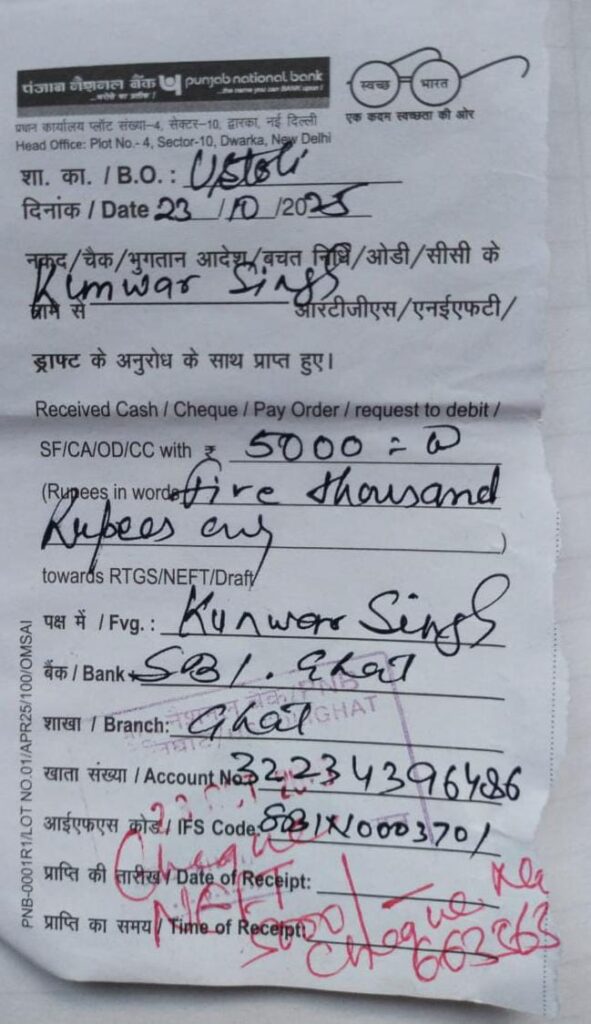 पंजाब नैशनल बैंक punjab national bank
...भरोसे का प्रतीक ! ...the name you can BANK upon !
स्वच्छ भारत
एक कदम स्वच्छता की ओर
प्रधान कार्यालय प्लॉट संख्या–4, सेक्टर–10, द्वारका, नई दिल्ली
Head Office: Plot No.- 4, Sector-10, Dwarka, New Delhi
शा. का. / B.O. :
दिनांक / Date 23 /10 /2025
नकद/चैक/भुगतान आदेश/बचत निधि/ओडी/सीसी के
Kunwar Singh
नाम से आरटीजीएस/एनईएफटी/
ड्राफ्ट के अनुरोध के साथ प्राप्त हुए।
Received Cash / Cheque / Pay Order / request to debit /
SF/CA/OD/CC with ₹ 5000 =
(Rupees in words Five thousand
Rupees only )
towards RTGS/NEFT/Draft
पक्ष में / Fvg. : Kunwar Singh
बैंक / Bank SBI. Ghat
शाखा / Branch: Ghat
खाता संख्या / Account No. 32234396486
आईएफएस कोड / IFS Code: SBIN0003701
Cheque
प्राप्ति की तारीख / Date of Receipt:
NEFT
प्राप्ति का समय / Time of Receipt:
5000/- Cheque
663563
PNB-0001R1/LOT NO.01/APR25/100/OMSAI